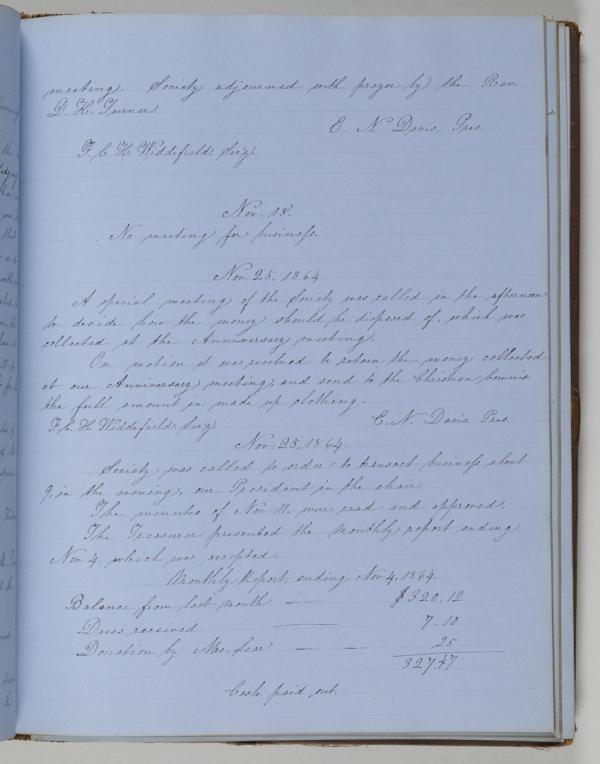 meeting. Society adjourned with prayer by the Rev.
D. K. Turner.
E. N. Davis, Pres.
F. C. H. Widdifield, Sec'y.
Nov. 18.
No meeting for business.
Nov. 25. 1864
A special meeting of the Society was called in the afternoon
to decide how the money should be disposed of, which was
collected at the Anniversary meeting.
On motion it was resolved to retain the money collected
at our Anniversary meeting, and send to the Christian Commis
the full amount in made up clothing.
F. C. H. Widdifield, Sec'y. E. N. Davis. Pres.
Nov. 25. 1864.
Society was called to order to transact business about
9, in the evening, our President in the chair.
The minutes of Nov 11. were read and approved.
The Treasurer presented the monthly report ending
Nov 4. which was accepted.
Monthly Report, ending Nov 4. 1864.
Balance from last month — $320.12
Dues received — 7.10
Donation by Mrs. — — 25
327.47
Cash paid out.